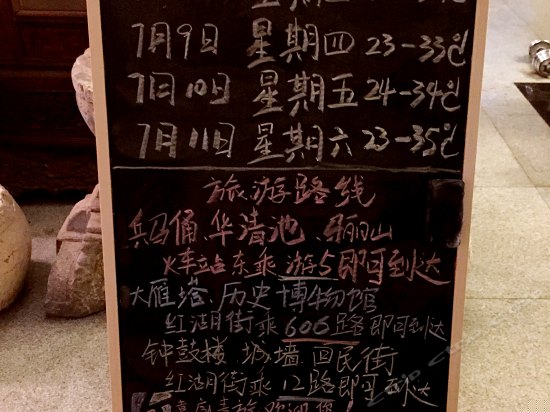 7月9日 星期四 23-33℃
7月10日 星期五 24-34℃
7月11日 星期六 23-35℃
旅游路线
兵马俑 华清池 骊山
火车站东乘 游5即可到达
大雁塔 历史博物馆
红湖街乘606路即可到达
钟鼓楼 城墙 回民街
红湖街乘12路即可到达